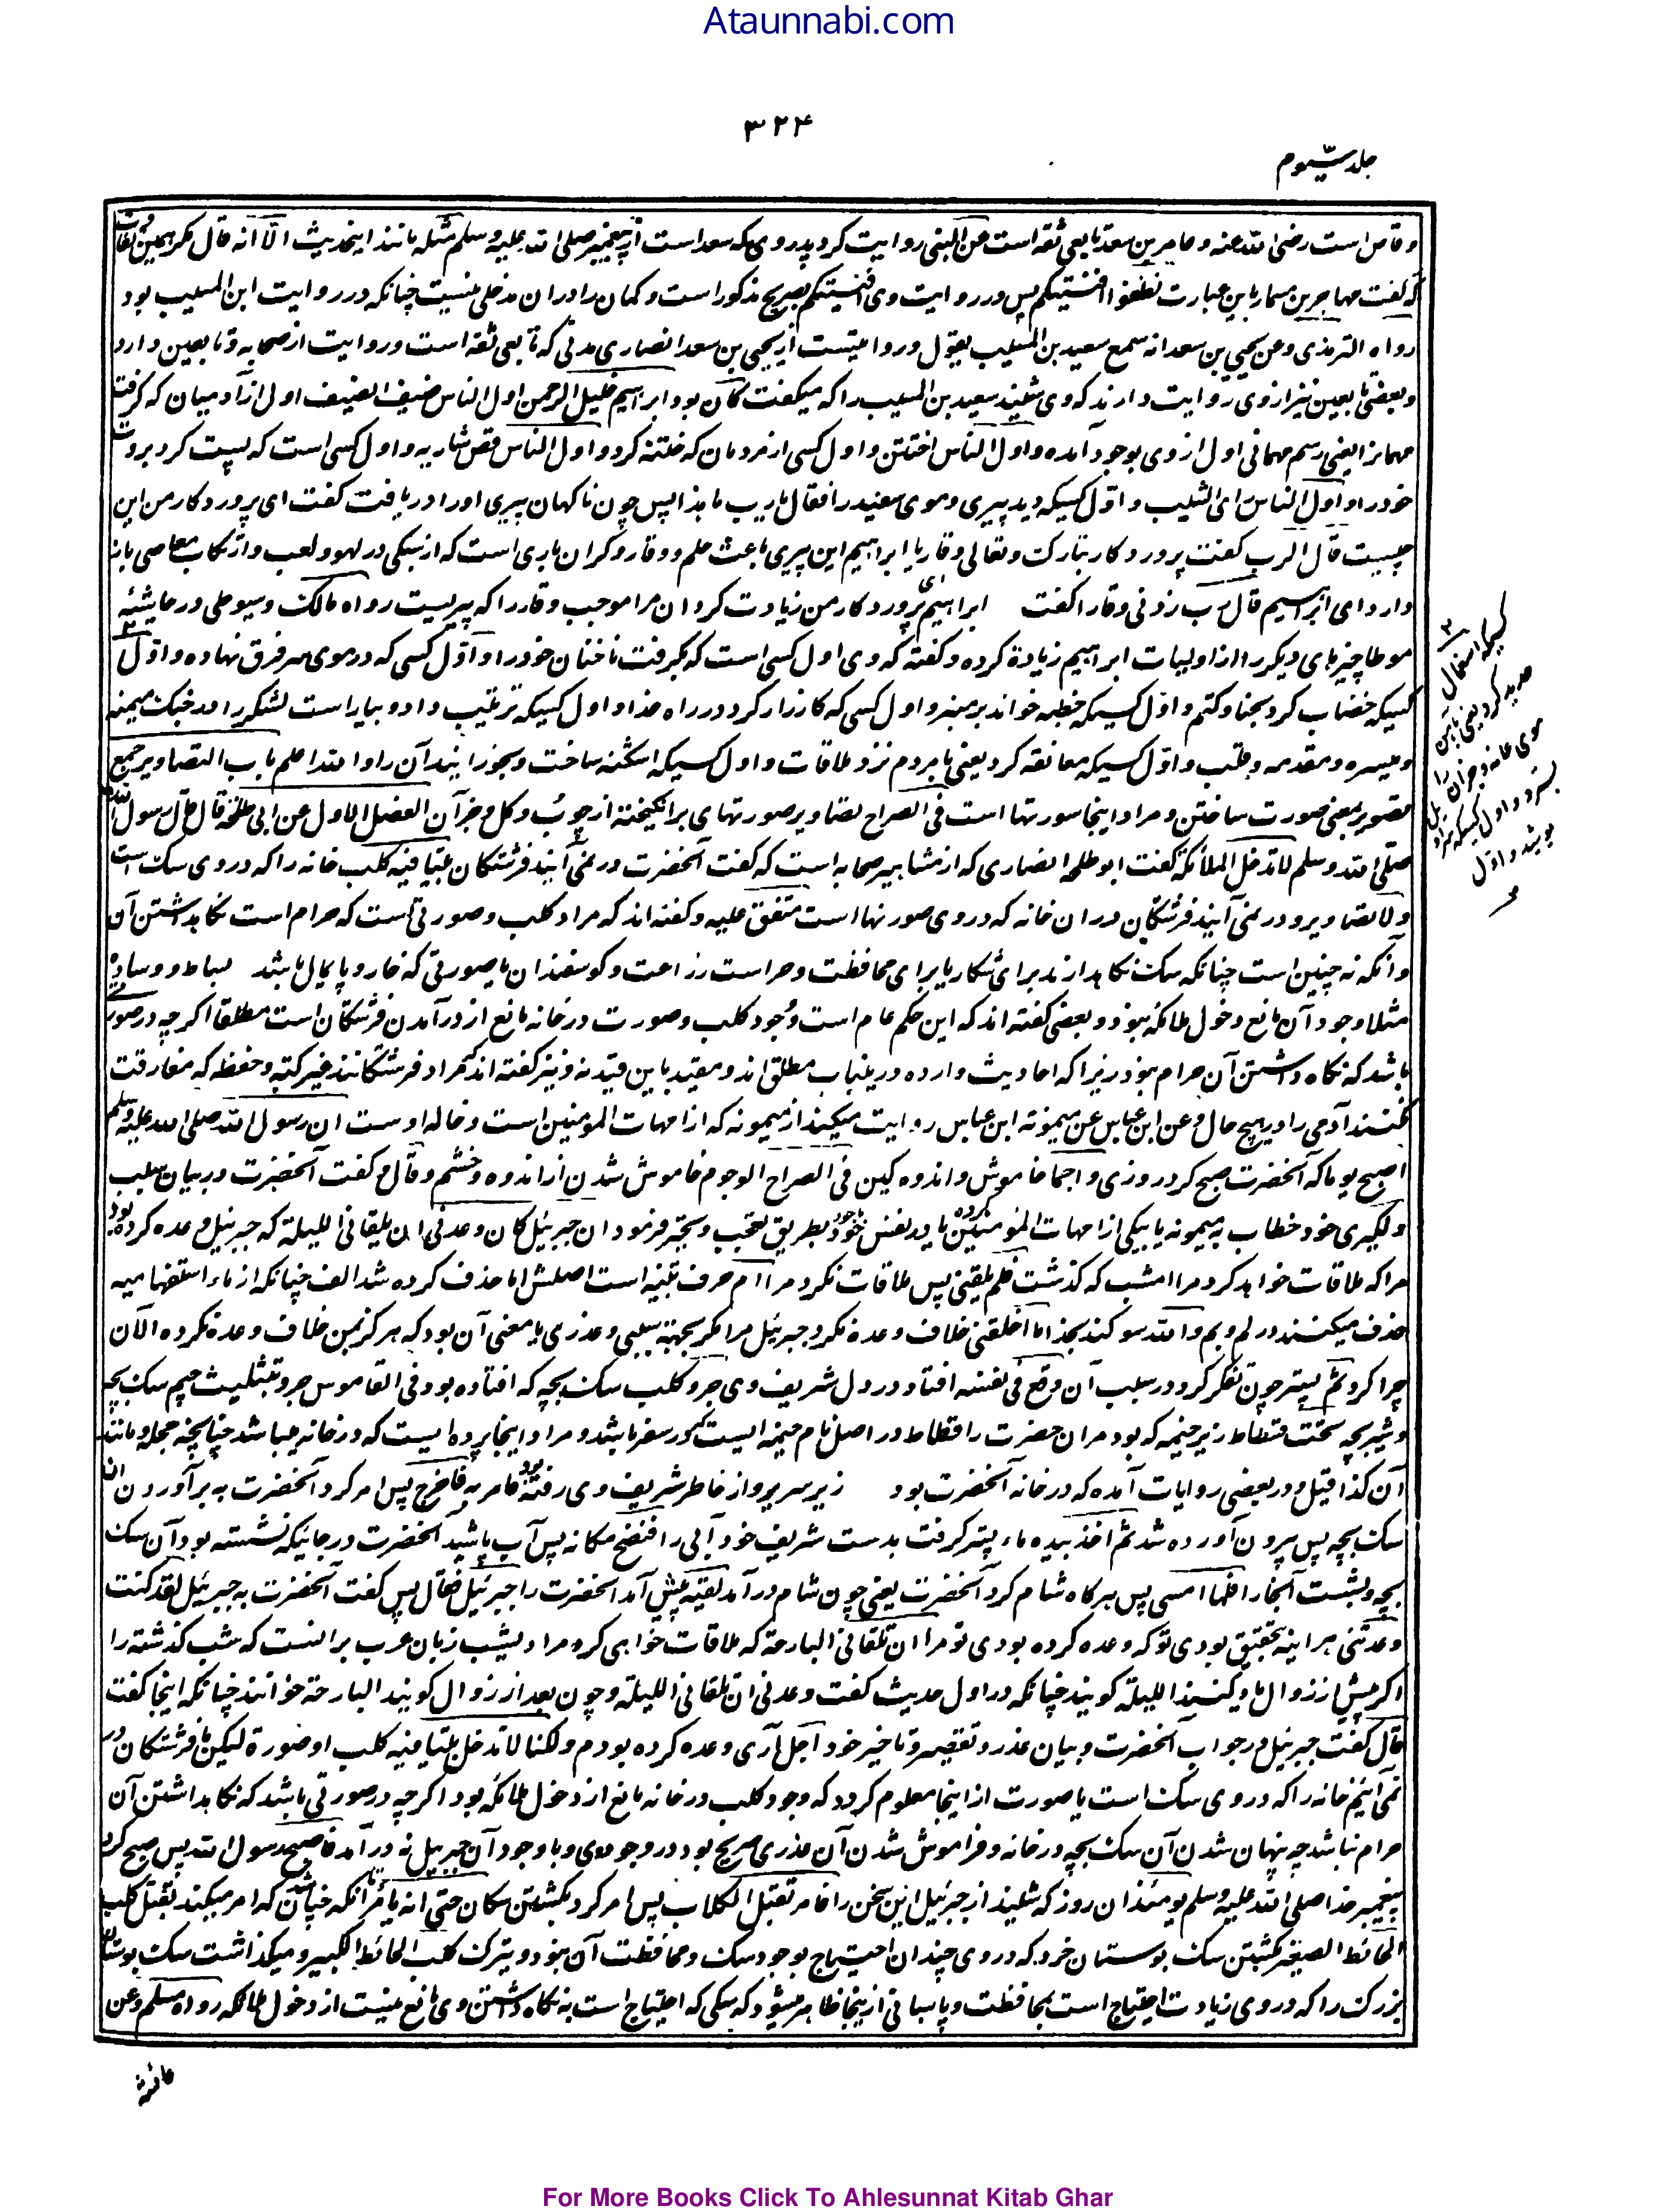 Ataunnabi.com
۳۲۴
جلد سیوم
وقاص است رضی الله عنه و عامر بن سعد تابعی ثقه است عن النبی روایت کرد پدر وی که سعد است از پیغمبر صلی الله علیه وسلم مثله مانند این حدیث الا انه قال مگر همین
که گفت مهاجر بن مسمار باین عبارت نظفوا افنیتکم پس در روایت وی افنیتکم بصریح مذکور است و گمان را دران مدخلی نیست چنانکه در روایت ابن المسیب بود
رواه الترمذی وعن یحیی بن سعد انه سمع سعید بن المسیب یقول و روایتست از یحیی بن سعد انصاری مدنی که تابعی ثقه است و روایت از صحابه و تابعین دارد
و بعضی تابعین نیز از وی روایت دارند که وی شنید سعید بن المسیب را که میگفت کان بود ابراهیم خلیل الرحمن اول الناس ضیف الضیف اول از آدمیان که گرفت
مهمانرا یعنی رسم مهمانی اول از وی بوجود آمده و اول الناس اختتن و اول کسی از مردمان که ختنه کرد و اول الناس قص شاربه و اول کسی است که پست کرد بروت
خود را و اول الناس رای الشیب و اول کسیکه دید پیری و موی سفید را فقال یا رب ما هذا پس چون ناگهان پیری او را دریافت گفت ای پروردگار من این
چیست قال الرب گفت پروردگار تبارک و تعالی وقار یا ابراهیم این پیری باعث حلم و وقار و گران باری است که از سبکی در لهو و لعب و ارتکاب معاصی باز
دارد ای ابراهیم قال رب زدنی وقارا گفت ابراهیم ای پروردگار من زیادت کردان مرا موجب وقار را که پیریست رواه مالک و سیوطی در حاشیه
موطا چیزهای دیگر را از اولیات ابراهیم زیادة کرده و گفته که وی اول کسی است که بگرفت ناخنان خود را و اول کسی که در موی سر فرق نهاده و اول
کسیکه خضاب کرد بحنا و کتم و اول کسیکه خطبه خواند بر منبر و اول کسی که کارزار کرد در راه خدا و اول کسیکه ترتیب داد و بیاراست لشکر را در جنگ میمنه
و میسره و مقدمه و قلب و اول کسیکه معانقه کرد یعنی با مردم نزد ملاقات و اول کسیکه اشکنه ساخت و بخورانید آن را والله اعلم باب التصاویر جمع
تصویر بمعنی صورت ساختن و مراد اینجا صورتها است فی الصراح تصاویر صورتهای برانگیخته از چوب و گل و جز آن الفصل الاول عن ابی طلحة قال قال رسول الله
صلی الله وسلم لا تدخل الملائکة گفت ابو طلحه انصاری که از مشاهیر صحابه است که گفت آنحضرت در نمی آیند فرشتگان بیتا فیه کلب خانه را که در وی سگ است
و لا تصاویر و در نمی آیند فرشتگان دران خانه که در وی صورتها است متفق علیه و گفته اند که مراد کلب و صورتی است که حرام است نگاهداشتن آن
و آنکه نه چنین است چنانکه سگ نگاه دارند برای شکار یا برای محافظت و حراست زراعت و گوسفندان یا صورتی که خار و پایمال باشد بساط و وساده
مثلا وجود آن مانع دخول ملائکه نبود و بعضی گفته اند که این حکم عام است وجود کلب و صورت در خانه مانع از درآمدن فرشتگان است مطلقا اگرچه در صورتی
باشد که نگاه داشتن آن حرام نبود زیرا که احادیث وارده درین باب مطلق اند و مقید باین قید نه و نیز گفته اند که مراد فرشتگانند غیر کتبه و حفظه که مفارقت
نکنند آدمی را در هیچ حال و عن ابن عباس عن میمونة ابن عباس روایت میکند از میمونه که از امهات المومنین است و خاله اوست ان رسول الله صلی الله علیه وسلم
اصبح یوما که آنحضرت صبح کرد روزی واجما خاموش و اندوه گین فی الصراح الوجوم خاموش شدن از اندوه و خشم و قال و گفت آنحضرت در بیان سبب
دلگیری خود خطاب به میمونه یا بیکی از امهات المومنین کرده یا در نفس خود با خود بطریق تعجب و تحیر فرمود ان جبرئیل کان وعدنی ان یلقانی اللیلة که جبرئیل وعده کرده بود
مرا که ملاقات خواهد کرد مرا امشب که گذشت فلم یلقنی پس ملاقات نکرد مرا ام حرف تنبیه است اصلش اما حذف کرده شد الف چنانکه از ماء استفهامیه
حذف میکنند در لم و بم والله سوگند بخدا ما اخلفنی خلاف وعده نکرد جبرئیل مرا مگر بجهت سببی و عذری یا معنی آن بود که هرگز بمن خلاف وعده نکرده الآن
چرا کرد ثم پستر چون تفکر کرد در سبب آن وقع فی نفسه افتاد در دل شریف وی جرو کلب سگ بچه که افتاده بود فی القاموس جرو بتثلیث جیم سگ بچه
و شیر بچه تحت فسطاط زیر خیمه که بود مران حضرت را فسطاط در اصل نام خیمه ایست که در سفر باشد و مراد اینجا پرده ایست که در خانه میباشد چنانچه حجله و مانند
آن کذا قیل و در بعضی روایات آمده که در خانه آنحضرت بود زیر سریر و از خاطر شریف وی رفته بود فامر به فاخرج پس امر کرد آنحضرت به برآوردن آن
سگ بچه پس بیرون آورده شد ثم اخذ بیده ماء پستر گرفت بدست شریف خود آبی را فنضح مکانه پس آب پاشید آنحضرت در جائیکه نشسته بود آن سگ
بچه و بشست آنجا را فلما امسی پس هرگاه شام کرد آنحضرت یعنی چون شام درآمد لقیه پیش آمد آنحضرت را جبرئیل فقال پس گفت آنحضرت به جبرئیل لقد کنت
وعدتنی هر اینه بتحقیق بودی تو که وعده کرده بودی تو مرا ان تلقانی البارحة که ملاقات خواهی کرد مرا دیشب زبان عرب برانست که شب گذشته را
اگر پیش از زوال یاد کنند اللیلة گویند چنانکه در اول حدیث گفت وعدنی ان یلقانی اللیلة و چون بعد از زوال گویند البارحة خوانند چنانکه اینجا گفت
قال گفت جبرئیل در جواب آنحضرت و بیان عذر و تقصیر و تاخیر خود اجل آری وعده کرده بودم ولکنا لا ندخل بیتا فیه کلب او صورة لیکن ما فرشتگان در
نمی آئیم خانه را که در وی سگ است یا صورت ازاینجا معلوم گردد که وجود کلب در خانه مانع از دخول ملائکه بود اگرچه در صورتی باشد که نگاهداشتن آن
حرام نباشد چه پنهان شدن آن سگ بچه در خانه و فراموش شدن آن عذری صریح بود در وجود وی و با وجود آن جبریل نه درآمد فاصبح رسول الله پس صبح کرد
پیغمبر خدا صلی الله علیه وسلم یومئذ ان روز که شنید از جبرئیل این سخن را فامر بقتل الکلاب پس امر کرد بکشتن سگان حتی انه یامر تا آنکه چنان شد که امر میکند بقتل کلب
الحائط الصغیر بکشتن سگ بوستان خرد که در وی چندان احتیاج بوجود سگ و محافظت آن نبود و یترک کلب الحائط الکبیر و میگذاشت سگ بوستان
بزرگ را که در وی زیادت احتیاج است بمحافظت و پاسبانی ازینجا ظاهر میشود که سگی که احتیاج است به نگاه داشتن وی مانع نیست از دخول ملائکه رواه مسلم وعن
کسیکه استعمال
حدید کرد یعنی بآهن
موی عانه و جز آن را
بسترد و اول کسیکه سراویل
پوشید و اول
عائشة
For More Books Click To Ahlesunnat Kitab Ghar